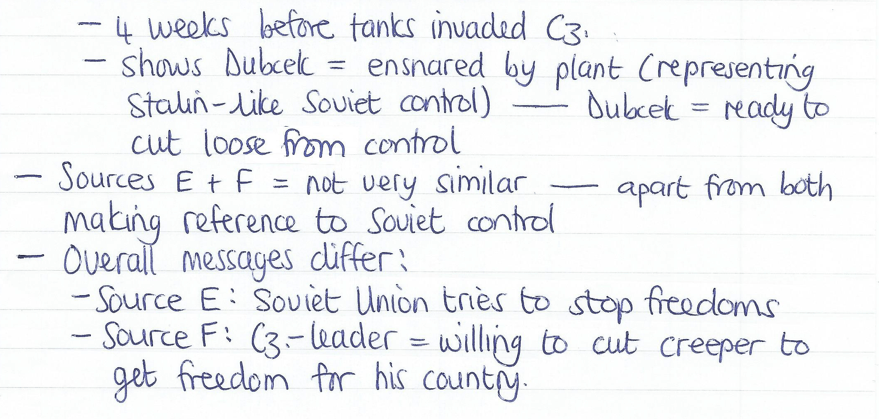 - 4 weeks before tanks invaded C3.
- shows Dubcek = ensnared by plant (representing
Stalin-like Soviet control) — Dubcek = ready to
cut loose from control
- Sources E + F = not very similar — apart from both
making reference to Soviet control
- Overall messages differ:
- Source E: Soviet Union tries to stop freedoms
- Source F: C3.-leader = willing to cut creeper to
get freedom for his country.